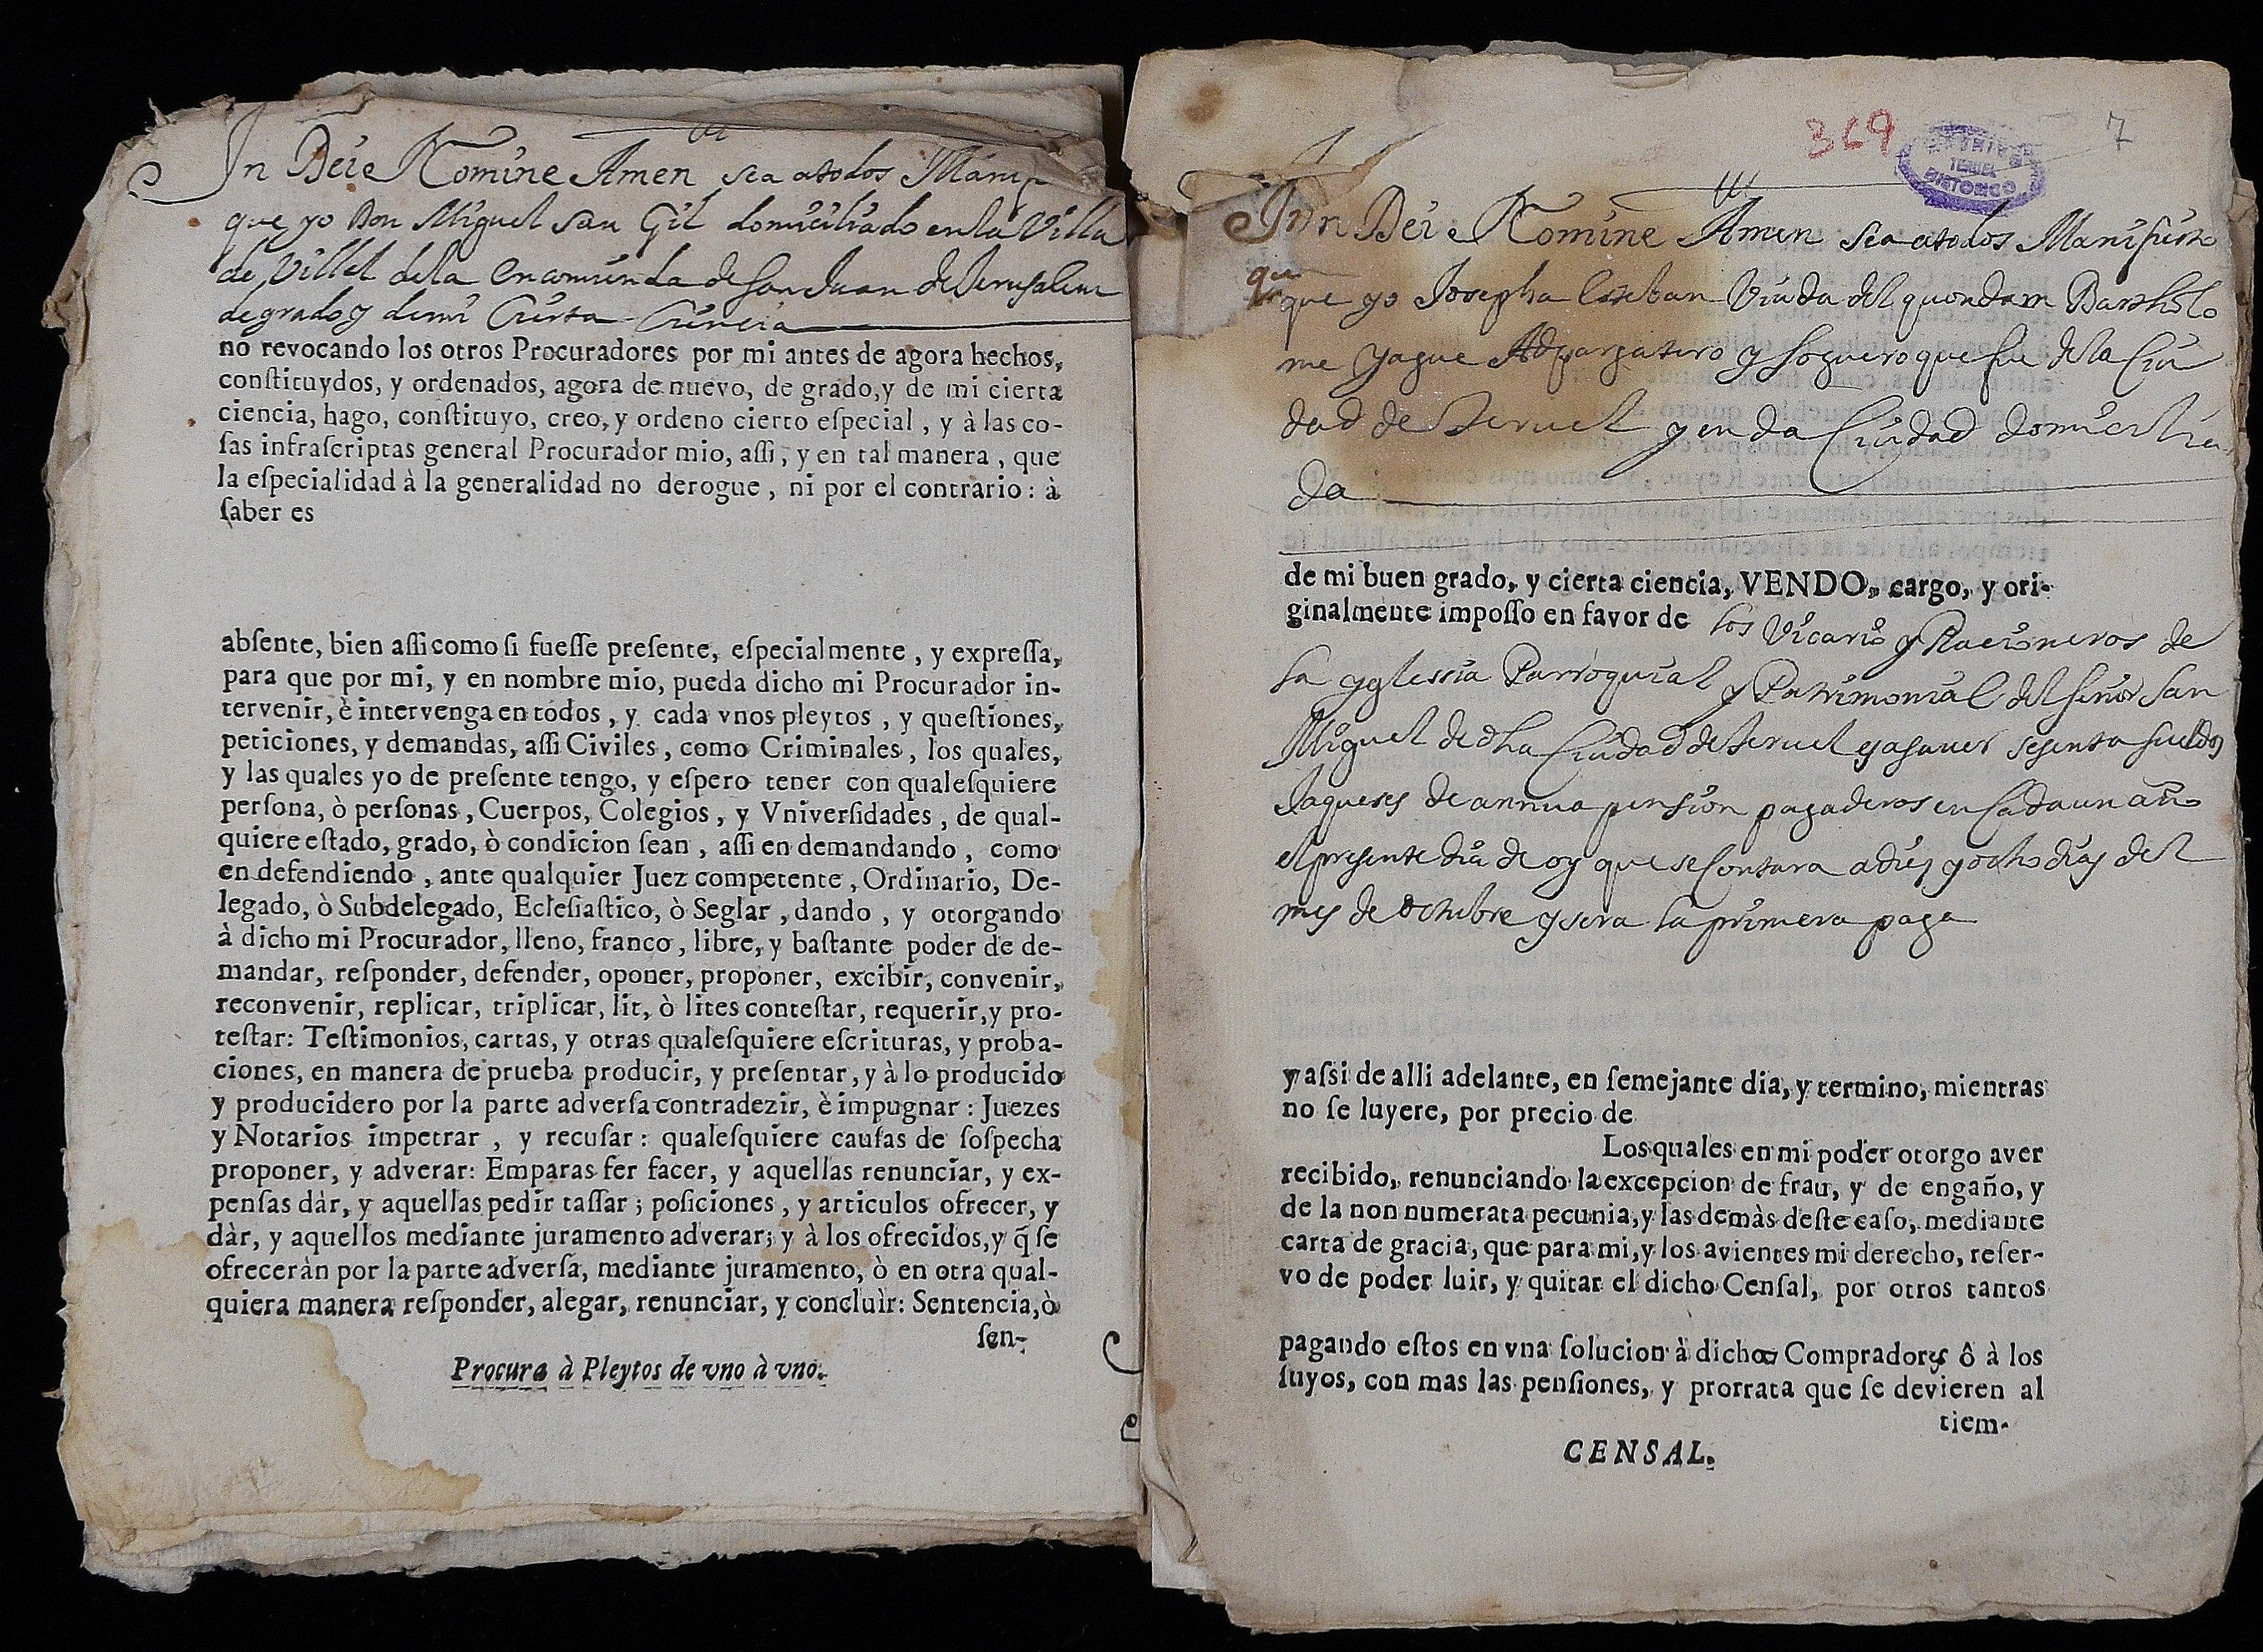 In Dei Nomine Amen sea a todos Manif
que yo Don Miguel San Gil domiciliado en la Villa
de Villel de la Encomienda de San Juan de Jerusalem
de grado y de mi Cierta Ciencia
no revocando los otros Procuradores por mi antes de agora hechos,
conſtituydos, y ordenados, agora de nuevo, de grado, y de mi cierta
ciencia, hago, conſtituyo, creo, y ordeno cierto eſpecial, y à las co-
ſas infraſcriptas general Procurador mio, aſſi, y en tal manera, que
la eſpecialidad à la generalidad no derogue, ni por el contrario: à
ſaber es
abſente, bien aſſi como ſi fueſſe preſente, eſpecialmente, y expreſſa,
para que por mi, y en nombre mio, pueda dicho mi Procurador in-
tervenir, è intervenga en todos, y cada vnos pleytos, y queſtiones,
peticiones, y demandas, aſſi Civiles, como Criminales, los quales,
y las quales yo de preſente tengo, y eſpero tener con qualeſquiere
perſona, ò perſonas, Cuerpos, Colegios, y Vniverſidades, de qual-
quiere eſtado, grado, ò condicion ſean, aſſi en demandando, como
en defendiendo, ante qualquier Juez competente, Ordinario, De-
legado, ò Subdelegado, Ecleſiaſtico, ò Seglar, dando, y otorgando
à dicho mi Procurador, lleno, franco, libre, y baſtante poder de de-
mandar, reſponder, defender, oponer, proponer, excibir, convenir,
reconvenir, replicar, triplicar, lit, ò lites conteſtar, requerir, y pro-
teſtar: Teſtimonios, cartas, y otras qualeſquiere eſcrituras, y proba-
ciones, en manera de prueba producir, y preſentar, y à lo producido
y producidero por la parte adverſa contradezir, è impugnar: Juezes
y Notarios impetrar, y recuſar: qualeſquiere cauſas de ſoſpecha
proponer, y adverar: Emparas fer facer, y aquellas renunciar, y ex-
penſas dàr, y aquellas pedir taſſar; poſiciones, y articulos ofrecer, y
dàr, y aquellos mediante juramento adverar; y à los ofrecidos, y q̃ ſe
ofreceràn por la parte adverſa, mediante juramento, ò en otra qual-
quiera manera reſponder, alegar, renunciar, y concluìr: Sentencia, ò
ſen-
Procura à Pleytos de vno à vno.
369
7
TERUEL
HISTORICO
In Dei Nomine Amen sea a todos Manifiesto
que
que yo Josepha Esteban Viuda del quondam Bartholo
me Yague Alpargatero y Soguero que fue de la Ciu
dad de Teruel y en dha Ciudad domicilia
da
de mi buen grado, y cierta ciencia, VENDO, cargo, y ori-
ginalmente impoſſo en favor de los Vicario y Racioneros de
la yglessia Parroquial y Patrimonial del señor San
Miguel de dha Ciudad de Teruel es a saver sesenta sueldos
Jaqueses de annua pension pagaderos en Cada un año
el presente dia de oy que se Contara a diez y ocho dias del
mes de Octubre y sera la primera paga
y aſsi de alli adelante, en ſemejante dia, y termino, mientras
no ſe luyere, por precio de
Los quales en mi poder otorgo aver
recibido, renunciando la excepcion de frau, y de engaño, y
de la non numerata pecunia, y las demàs deſte caſo, mediante
carta de gracia, que para mi, y los avientes mi derecho, reſer-
vo de poder luir, y quitar el dicho Cenſal, por otros tantos
pagando eſtos en vna ſolucion à dichos Compradores ô à los
ſuyos, con mas las penſiones, y prorrata que ſe devieren al
tiem-
CENSAL.